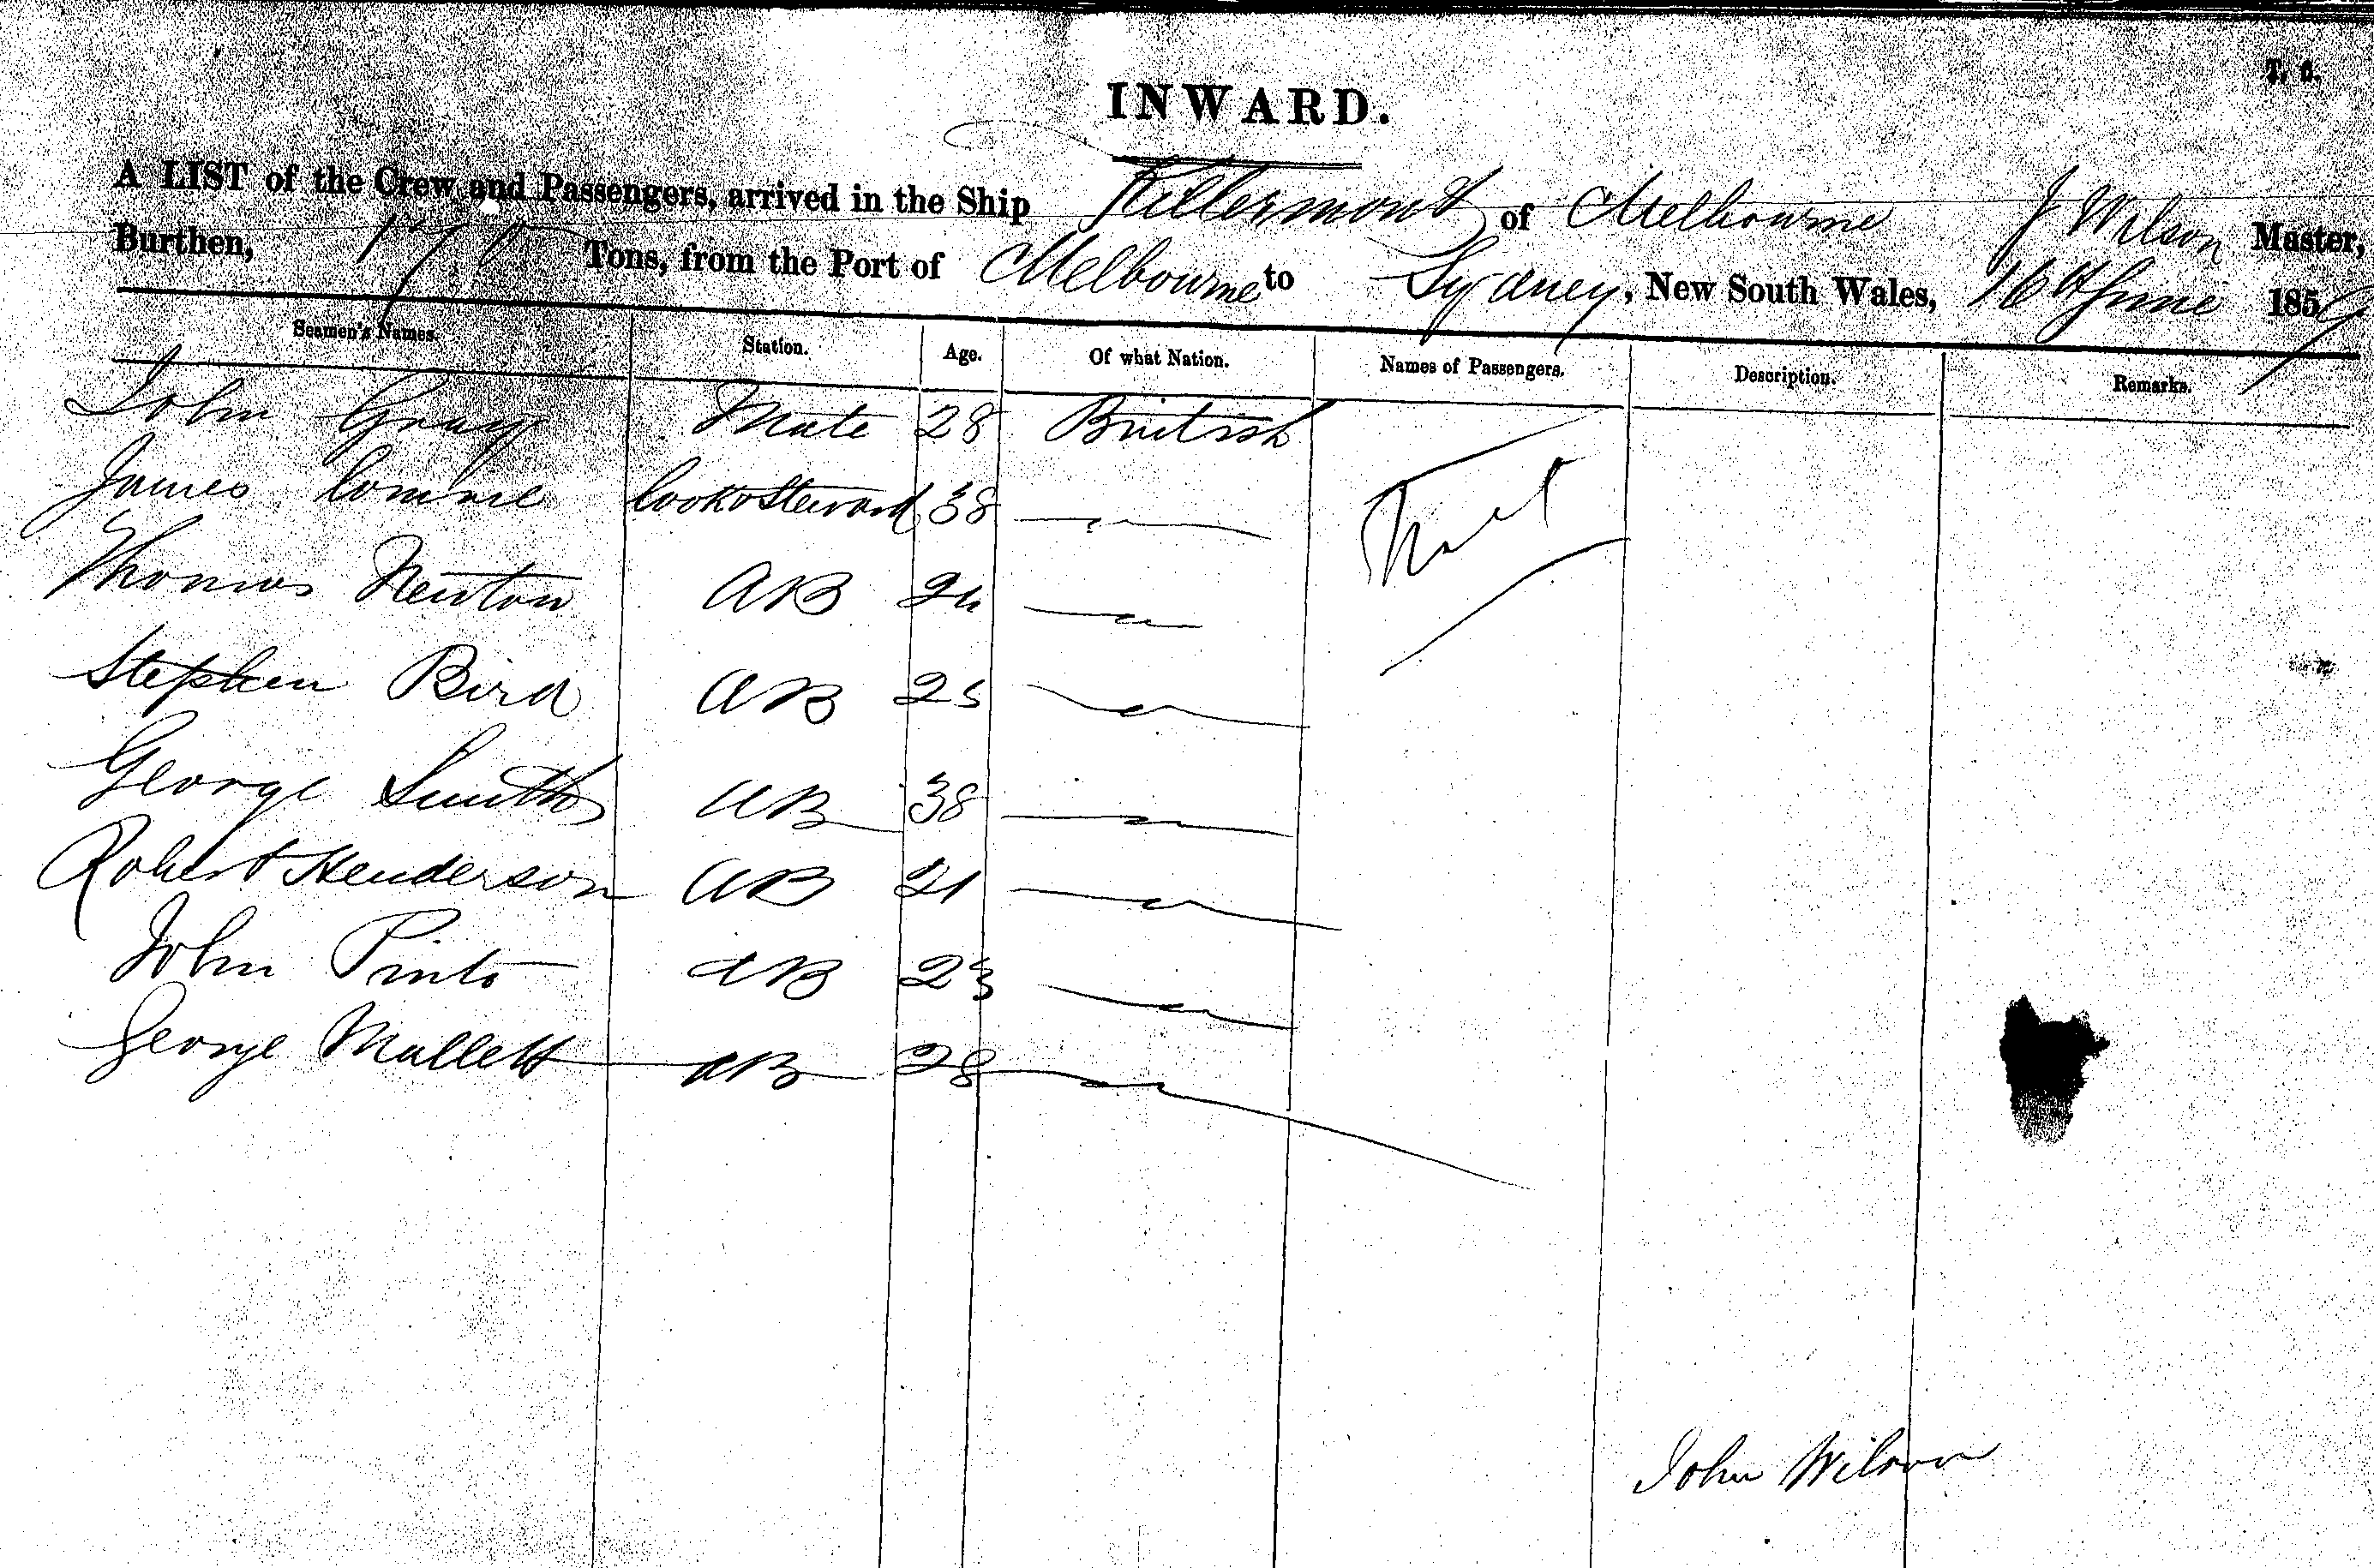 T. 6.
INWARD.
A LIST of the Crew and Passengers, arrived in the Ship Killermont of Melbourne J Wilson Master,
Burthen, 170 Tons, from the Port of Melbourne to Sydney, New South Wales, 16th June 1859
Seamen's Names. Station. Age. Of what Nation. Names of Passengers. Description. Remarks.
John Gray Mate 28 British
James Cook & Steward 38
Thomas Newton AB 24
Stephen Bird AB 25
George Smith AB 38
Robert Henderson AB 21
John Pinto AB 23
George Mallett AB 28
John Wilson